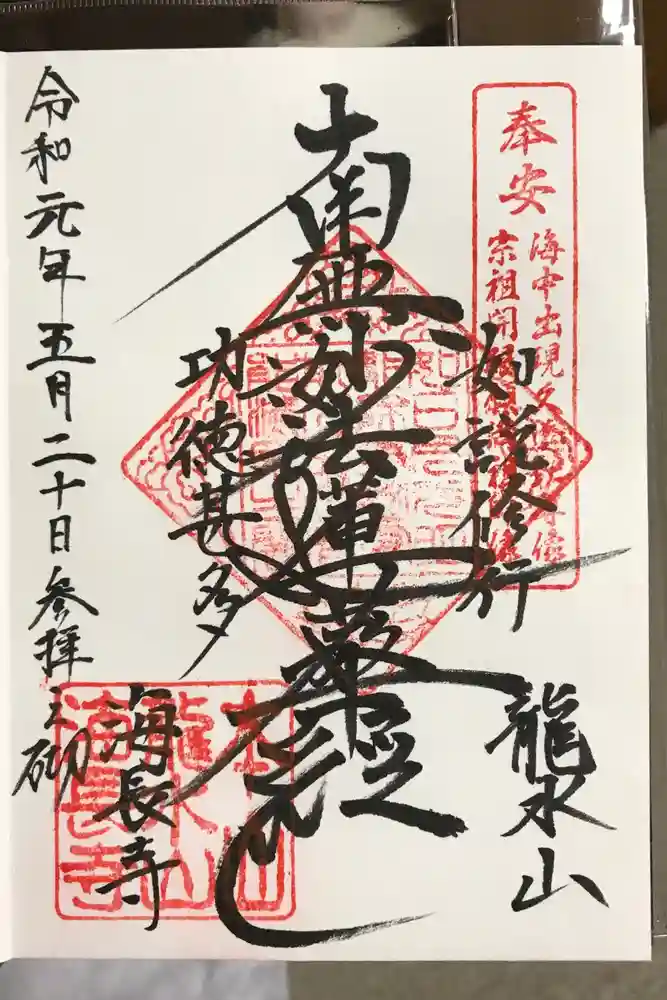 奉安
海中出現
宗祖開
如説修行
龍水山
南無妙法蓮華経
功徳甚多
海長寺
本山
龍水山
海長寺
令和元年五月二十日参拝之砌